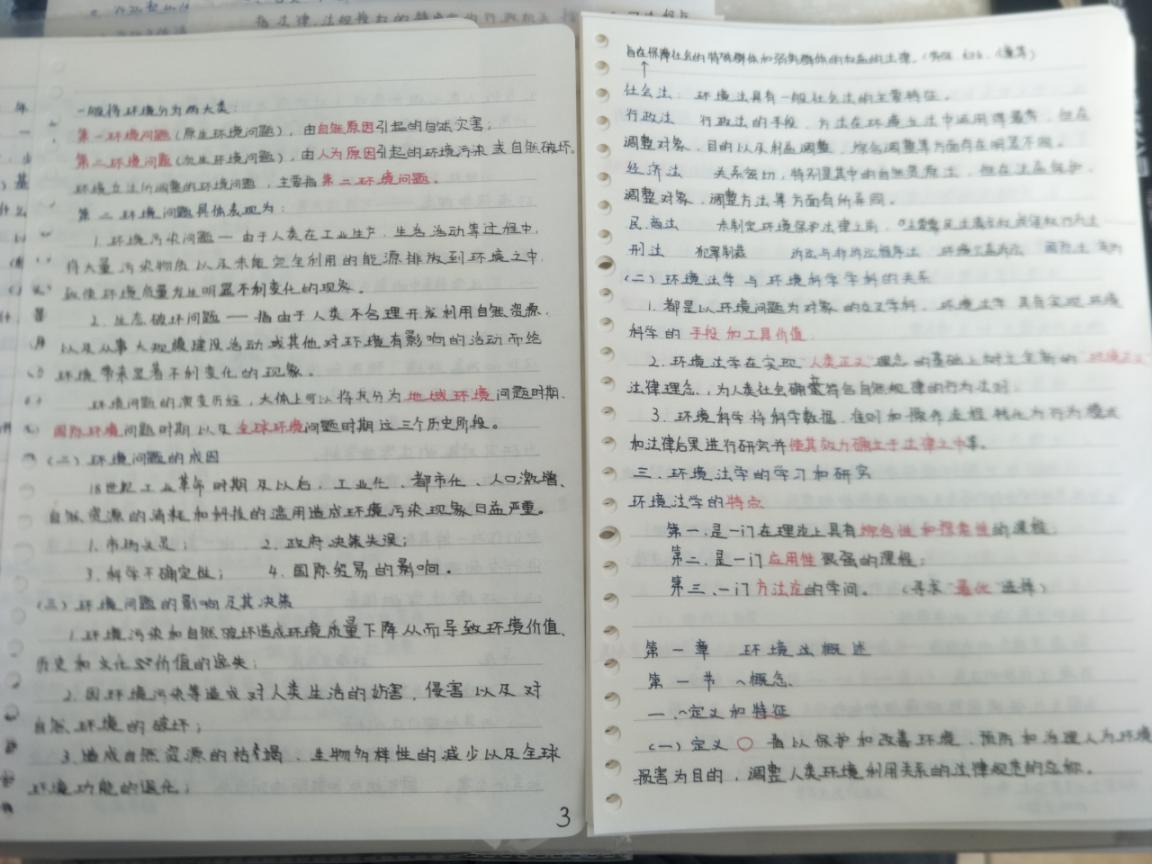 一般将环境分为两大类
第一环境问题(原生环境问题),由自然原因引起的自然灾害;
第二环境问题(次生环境问题),由人为原因引起的环境污染或自然破坏。
环境立法所调整的环境问题,主要指第二环境问题。
第二环境问题具体表现为:
1.环境污染问题—由于人类在工业生产、生活活动等过程中,
将大量污染物质以及未能完全利用的能源排放到环境之中,
致使环境质量发生明显不利变化的现象。
2.生态破坏问题——指由于人类不合理开发利用自然资源,
以及从事大规模建设活动或其他对环境有影响的活动而给
环境带来显著不利变化的现象。
环境问题的演变历程,大体上可以将其分为地域环境问题时期、
国际环境问题时期以及全球环境问题时期这三个历史阶段。
(二)环境问题的成因
18世纪工业革命时期及以后,工业化、都市化、人口激增、
自然资源的消耗和科技的滥用造成环境污染现象日益严重。
1.市场失灵; 2.政府决策失误;
3.科学不确定性; 4.国际贸易的影响。
(三)环境问题的影响及其决策
1.环境污染和自然破坏造成环境质量下降从而导致环境价值、
历史和文化价值的丧失;
2.因环境污染等造成对人类生活的妨害、侵害以及对
自然环境的破坏;
3.造成自然资源的枯竭、生物多样性的减少以及全球
环境功能的退化;
3
旨在保障社会的特殊群体和弱势群体的权益的法律。
社会法: 环境法具有一般社会法的主要特征。
行政法 行政法的手段、方法在环境立法中运用得最多,但在
调整对象、目的以及利益调整、综合调整等方面存在明显不同。
经济法 关系密切,特别是其中的自然资源法,但在法益保护、
调整对象、调整方法等方面有所不同。
民、商法 未制定环境保护法律之前,
刑法 犯罪制裁
(二)环境法学与环境科学学科的关系
1.都是以环境问题为对象的交叉学科,环境法学具有实现环境
科学的手段和工具价值
2.环境法学在实现“人类正义”理念的基础上树立全新的“环境正义”
法律理念,为人类社会确立符合自然规律的行为法则;
3.环境科学将科学数据、准则和操作流程转化为行为模式
和法律后果进行研究并使其效力确立于法律之中等。
三、环境法学的学习和研究
环境法学的特点
第一、是一门在理论上具有综合性和探索性的课程;
第二、是一门应用性很强的课程;
第三、一门方法论的学问。(寻求“最优”选择)
第一章 环境法概述
第一节 ~概念
一、~定义和特征
(一)定义 ○ 指以保护和改善环境、预防和治理人为环境
损害为目的,调整人类环境利用关系的法律规范的总称。